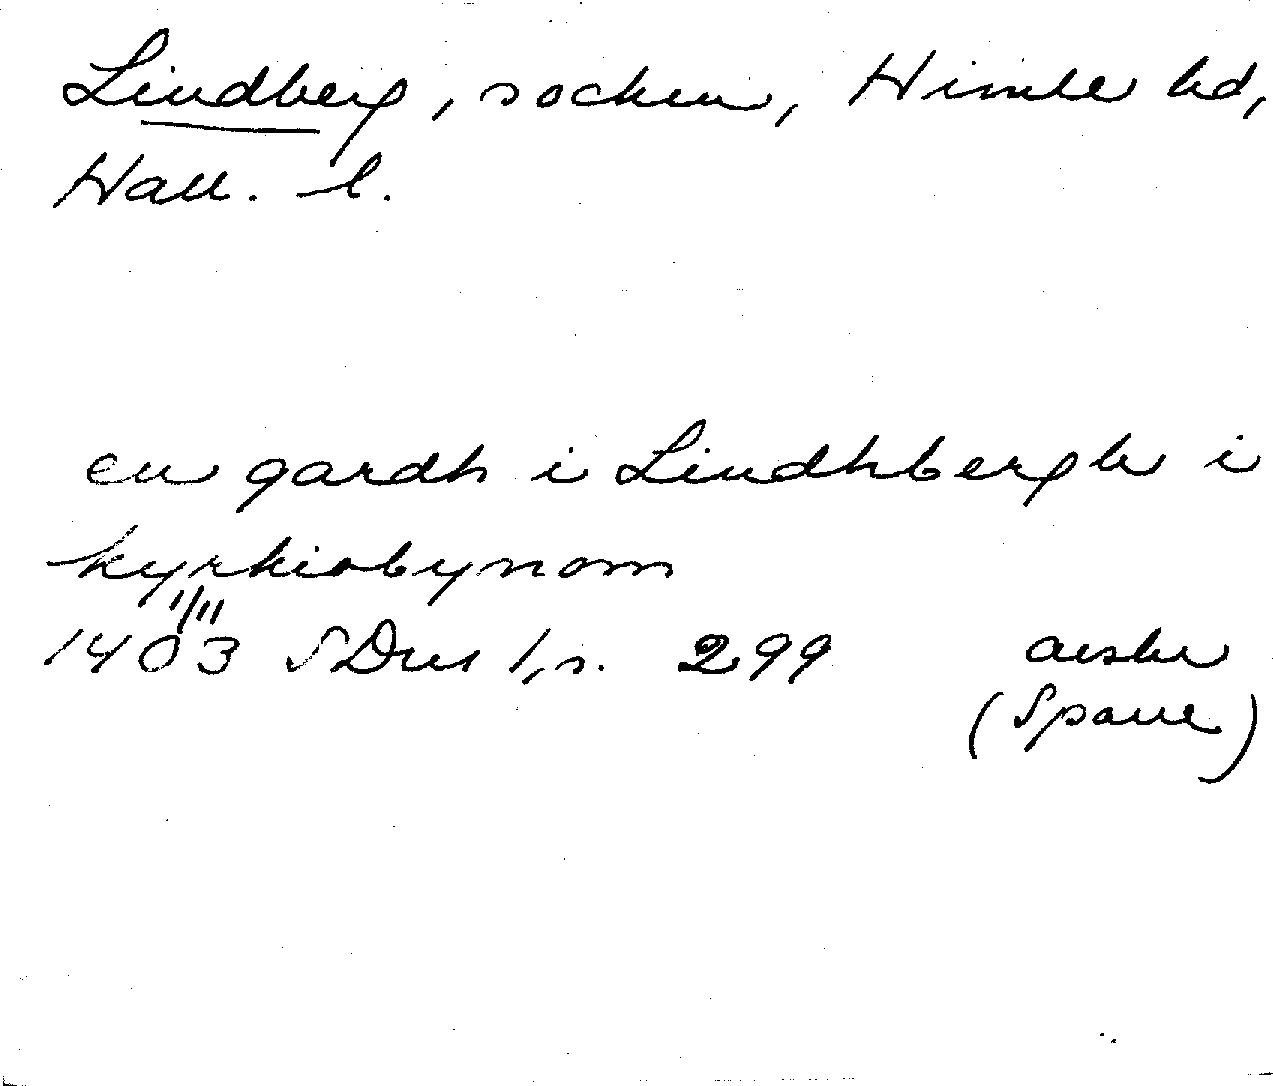 Lindberg, socken, Himle hd,
Hall. l.
en gardh i Lindhbergh i
kyrkiobynom
11/11
1403 SDns 1, s. 299 avskr
(Spane)